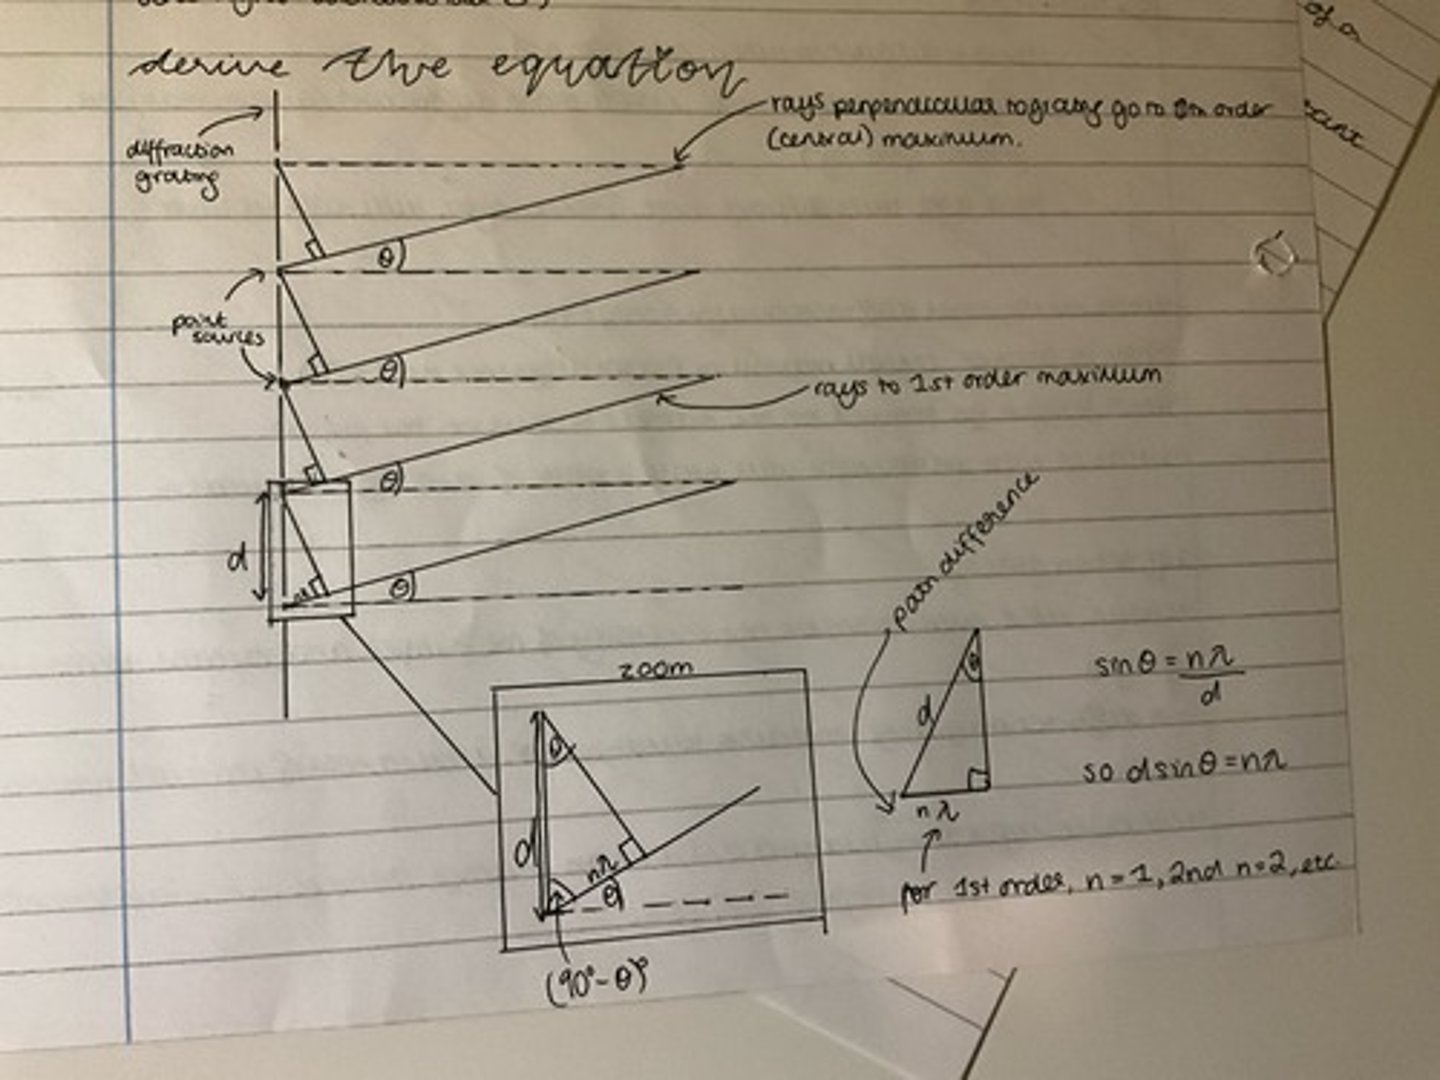 derive the equation
rays perpendicular to grating go to 0th order
(central) maximum.
diffraction
grating
θ
point
sources
θ
rays to 1st order maximum
θ
d
θ
path difference
zoom
θ
d
nλ
θ
(90°-θ)°
θ
d
nλ
sinθ = nλ
d
so dsinθ=nλ
for 1st order, n=1, 2nd n=2, etc.
of a